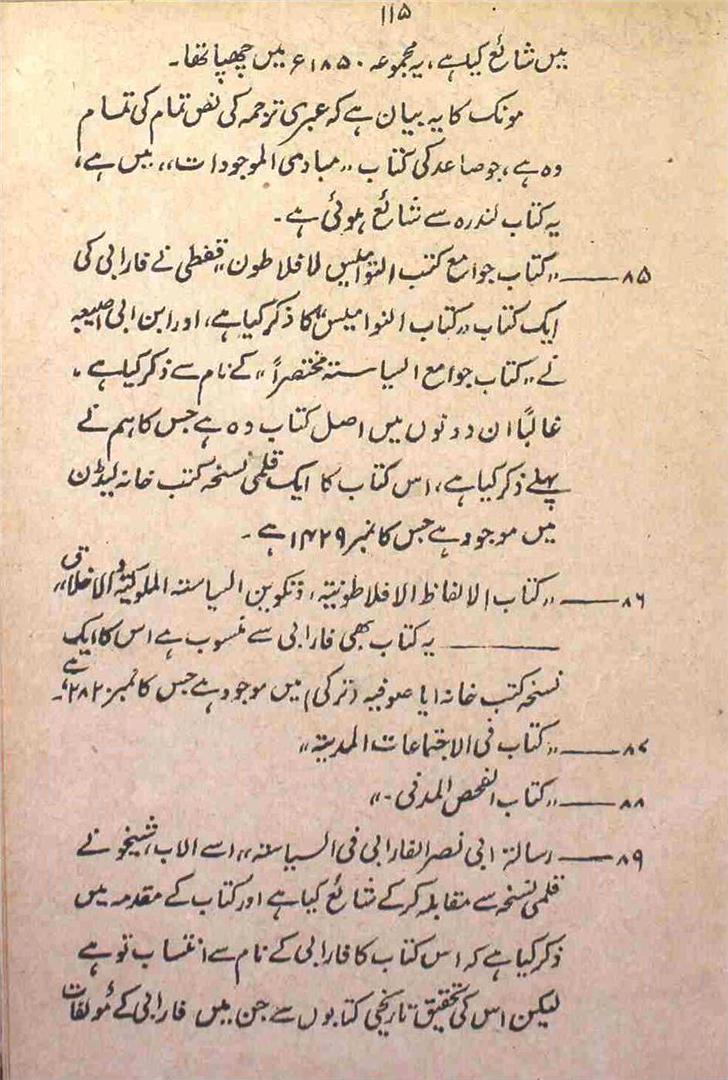 ۱۱۵
میں شائع کیا ہے، یہ مجموعہ ۱۸۵۰ء میں چھپا تھا۔
مونک کا یہ بیان ہے کہ عبری ترجمہ کی نص تمام کی تمام
وہ ہے، جو صاعد کی کتاب "مبادی الموجودات"، میں ہے،
یہ کتاب لندرہ سے شائع ہوئی ہے۔
۸۵ــــــ "کتاب جوامع کتب النوامیس لافلاطون" قفطی نے فارابی کی
ایک کتاب "کتاب النوامیس" کا ذکر کیا ہے، اور ابن ابی اصیبعہ
نے "کتاب جوامع السیاستہ مختصراً" کے نام سے ذکر کیا ہے۔
غالباً ان دونوں میں اصل کتاب وہ ہے جس کا ہم نے
پہلے ذکر کیا ہے، اس کتاب کا ایک قلمی نسخہ کتب خانہ لیڈن
میں موجود ہے جس کا نمبر ۱۴۲۹ ہے۔
۸۶ــــــ "کتاب الالفاظ الافلاطونیتہ، و تکوین السیاستہ الملوکیتہ والاخلاق"
ــــــ یہ کتاب بھی فارابی سے منسوب ہے اس کا ایک
نسخہ کتب خانہ ایا صوفیہ (ترکی) میں موجود ہے جس کا نمبر ۲۸۲۰ ہے۔
۸۷ــــــ "کتاب فی الاجتماعات المدیتہ"
۸۸ــــــ "کتاب الفحص المدنی۔"
۸۹ــــــ رسالۃ ابی نصر الفارابی فی السیاستہ" اسے الاب شیخو نے
قلمی نسخہ سے مقابلہ کر کے شائع کیا ہے اور کتاب کے مقدمہ میں
ذکر کیا ہے کہ اس کتاب کا فارابی کے نام سے انتساب تو ہے
لیکن اس کی تحقیق تاریخی کتابوں سے جن میں فارابی کے مؤلفات